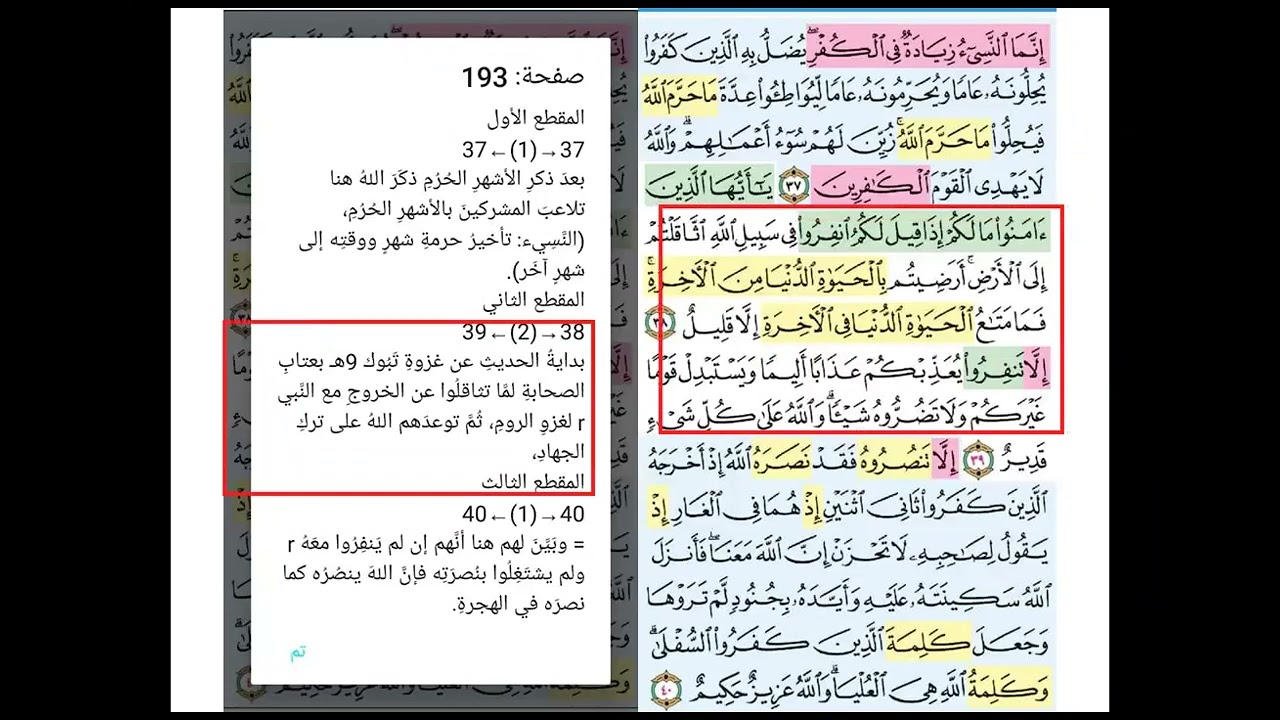 إِنَّمَا ٱلنَّسِىٓءُ زِيَادَةٌ فِى ٱلْكُفْرِ ۖ يُضَلُّ بِهِ ٱلَّذِينَ كَفَرُوا۟
يُحِلُّونَهُۥ عَامًا وَيُحَرِّمُونَهُۥ عَامًا لِّيُوَاطِـُٔوا۟ عِدَّةَ مَا حَرَّمَ ٱللَّهُ
فَيُحِلُّوا۟ مَا حَرَّمَ ٱللَّهُ ۚ زُيِّنَ لَهُمْ سُوٓءُ أَعْمَـٰلِهِمْ ۗ وَٱللَّهُ
لَا يَهْدِى ٱلْقَوْمَ ٱلْكَـٰفِرِينَ ٣٧ يَـٰٓأَيُّهَا ٱلَّذِينَ
ءَامَنُوا۟ مَا لَكُمْ إِذَا قِيلَ لَكُمُ ٱنفِرُوا۟ فِى سَبِيلِ ٱللَّهِ ٱثَّاقَلْتُمْ
إِلَى ٱلْأَرْضِ ۚ أَرَضِيتُم بِٱلْحَيَوٰةِ ٱلدُّنْيَا مِنَ ٱلْـَٔاخِرَةِ ۚ
فَمَا مَتَـٰعُ ٱلْحَيَوٰةِ ٱلدُّنْيَا فِى ٱلْـَٔاخِرَةِ إِلَّا قَلِيلٌ ٣٨
إِلَّا تَنفِرُوا۟ يُعَذِّبْكُمْ عَذَابًا أَلِيمًا وَيَسْتَبْدِلْ قَوْمًا
غَيْرَكُمْ وَلَا تَضُرُّوهُ شَيْـًٔا ۗ وَٱللَّهُ عَلَىٰ كُلِّ شَىْءٍ
قَدِيرٌ ٣٩ إِلَّا تَنصُرُوهُ فَقَدْ نَصَرَهُ ٱللَّهُ إِذْ أَخْرَجَهُ
ٱلَّذِينَ كَفَرُوا۟ ثَانِىَ ٱثْنَيْنِ إِذْ هُمَا فِى ٱلْغَارِ إِذْ
يَقُولُ لِصَـٰحِبِهِۦ لَا تَحْزَنْ إِنَّ ٱللَّهَ مَعَنَا ۖ فَأَنزَلَ
ٱللَّهُ سَكِينَتَهُۥ عَلَيْهِ وَأَيَّدَهُۥ بِجُنُودٍ لَّمْ تَرَوْهَا
وَجَعَلَ كَلِمَةَ ٱلَّذِينَ كَفَرُوا۟ ٱلسُّفْلَىٰ ۗ
وَكَلِمَةُ ٱللَّهِ هِىَ ٱلْعُلْيَا ۗ وَٱللَّهُ عَزِيزٌ حَكِيمٌ ٤٠
صفحة: 193
المقطع الأول
37 ← (1) → 37
بعدَ ذكرِ الأشهرِ الحُرُمِ ذكَرَ اللهُ هنا
تلاعبَ المشركينَ بالأشهرِ الحُرُمِ،
(النَّسِيء: تأخيرُ حرمةِ شهرٍ ووقتِه إلى
شهرٍ آخَر).
المقطع الثاني
38 → (2) ← 39
بدايةُ الحديثِ عن غزوةِ تَبُوك 9هـ بعتابِ
الصحابةِ لمَّا تثاقلُوا عن الخروجِ مع النَّبي
r لغزوِ الرومِ، ثُمَّ توعدَهم اللهُ على تركِ
الجهادِ،
المقطع الثالث
40 ← (1) → 40
= وبَيَّنَ لهم هنا أنَّهم إن لم يَنفِرُوا معَهُ r
ولم يشتَغِلُوا بنُصرَتِه فإنَّ اللهَ ينصُرُه كما
نصرَه في الهجرةِ.
تم